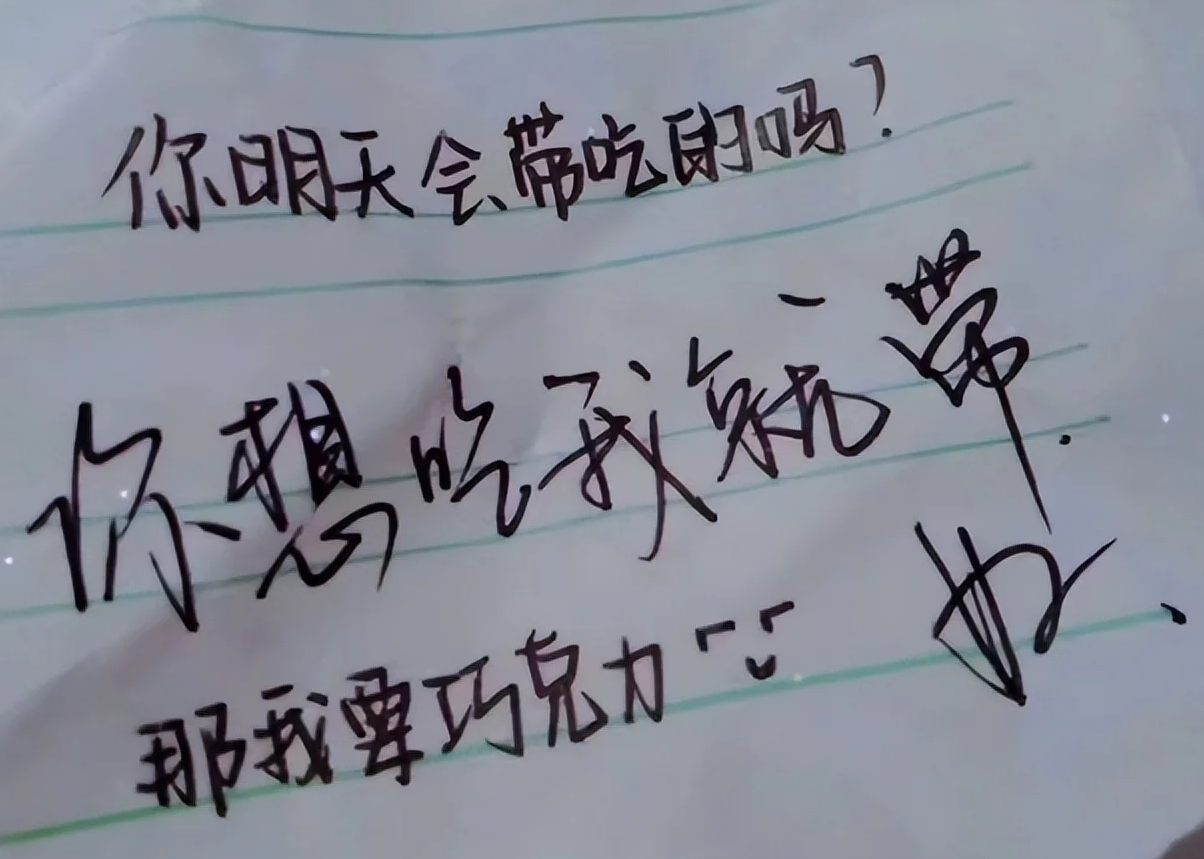 你明天会带吃的吗?
你想吃我就带.
那我要巧克力
好.